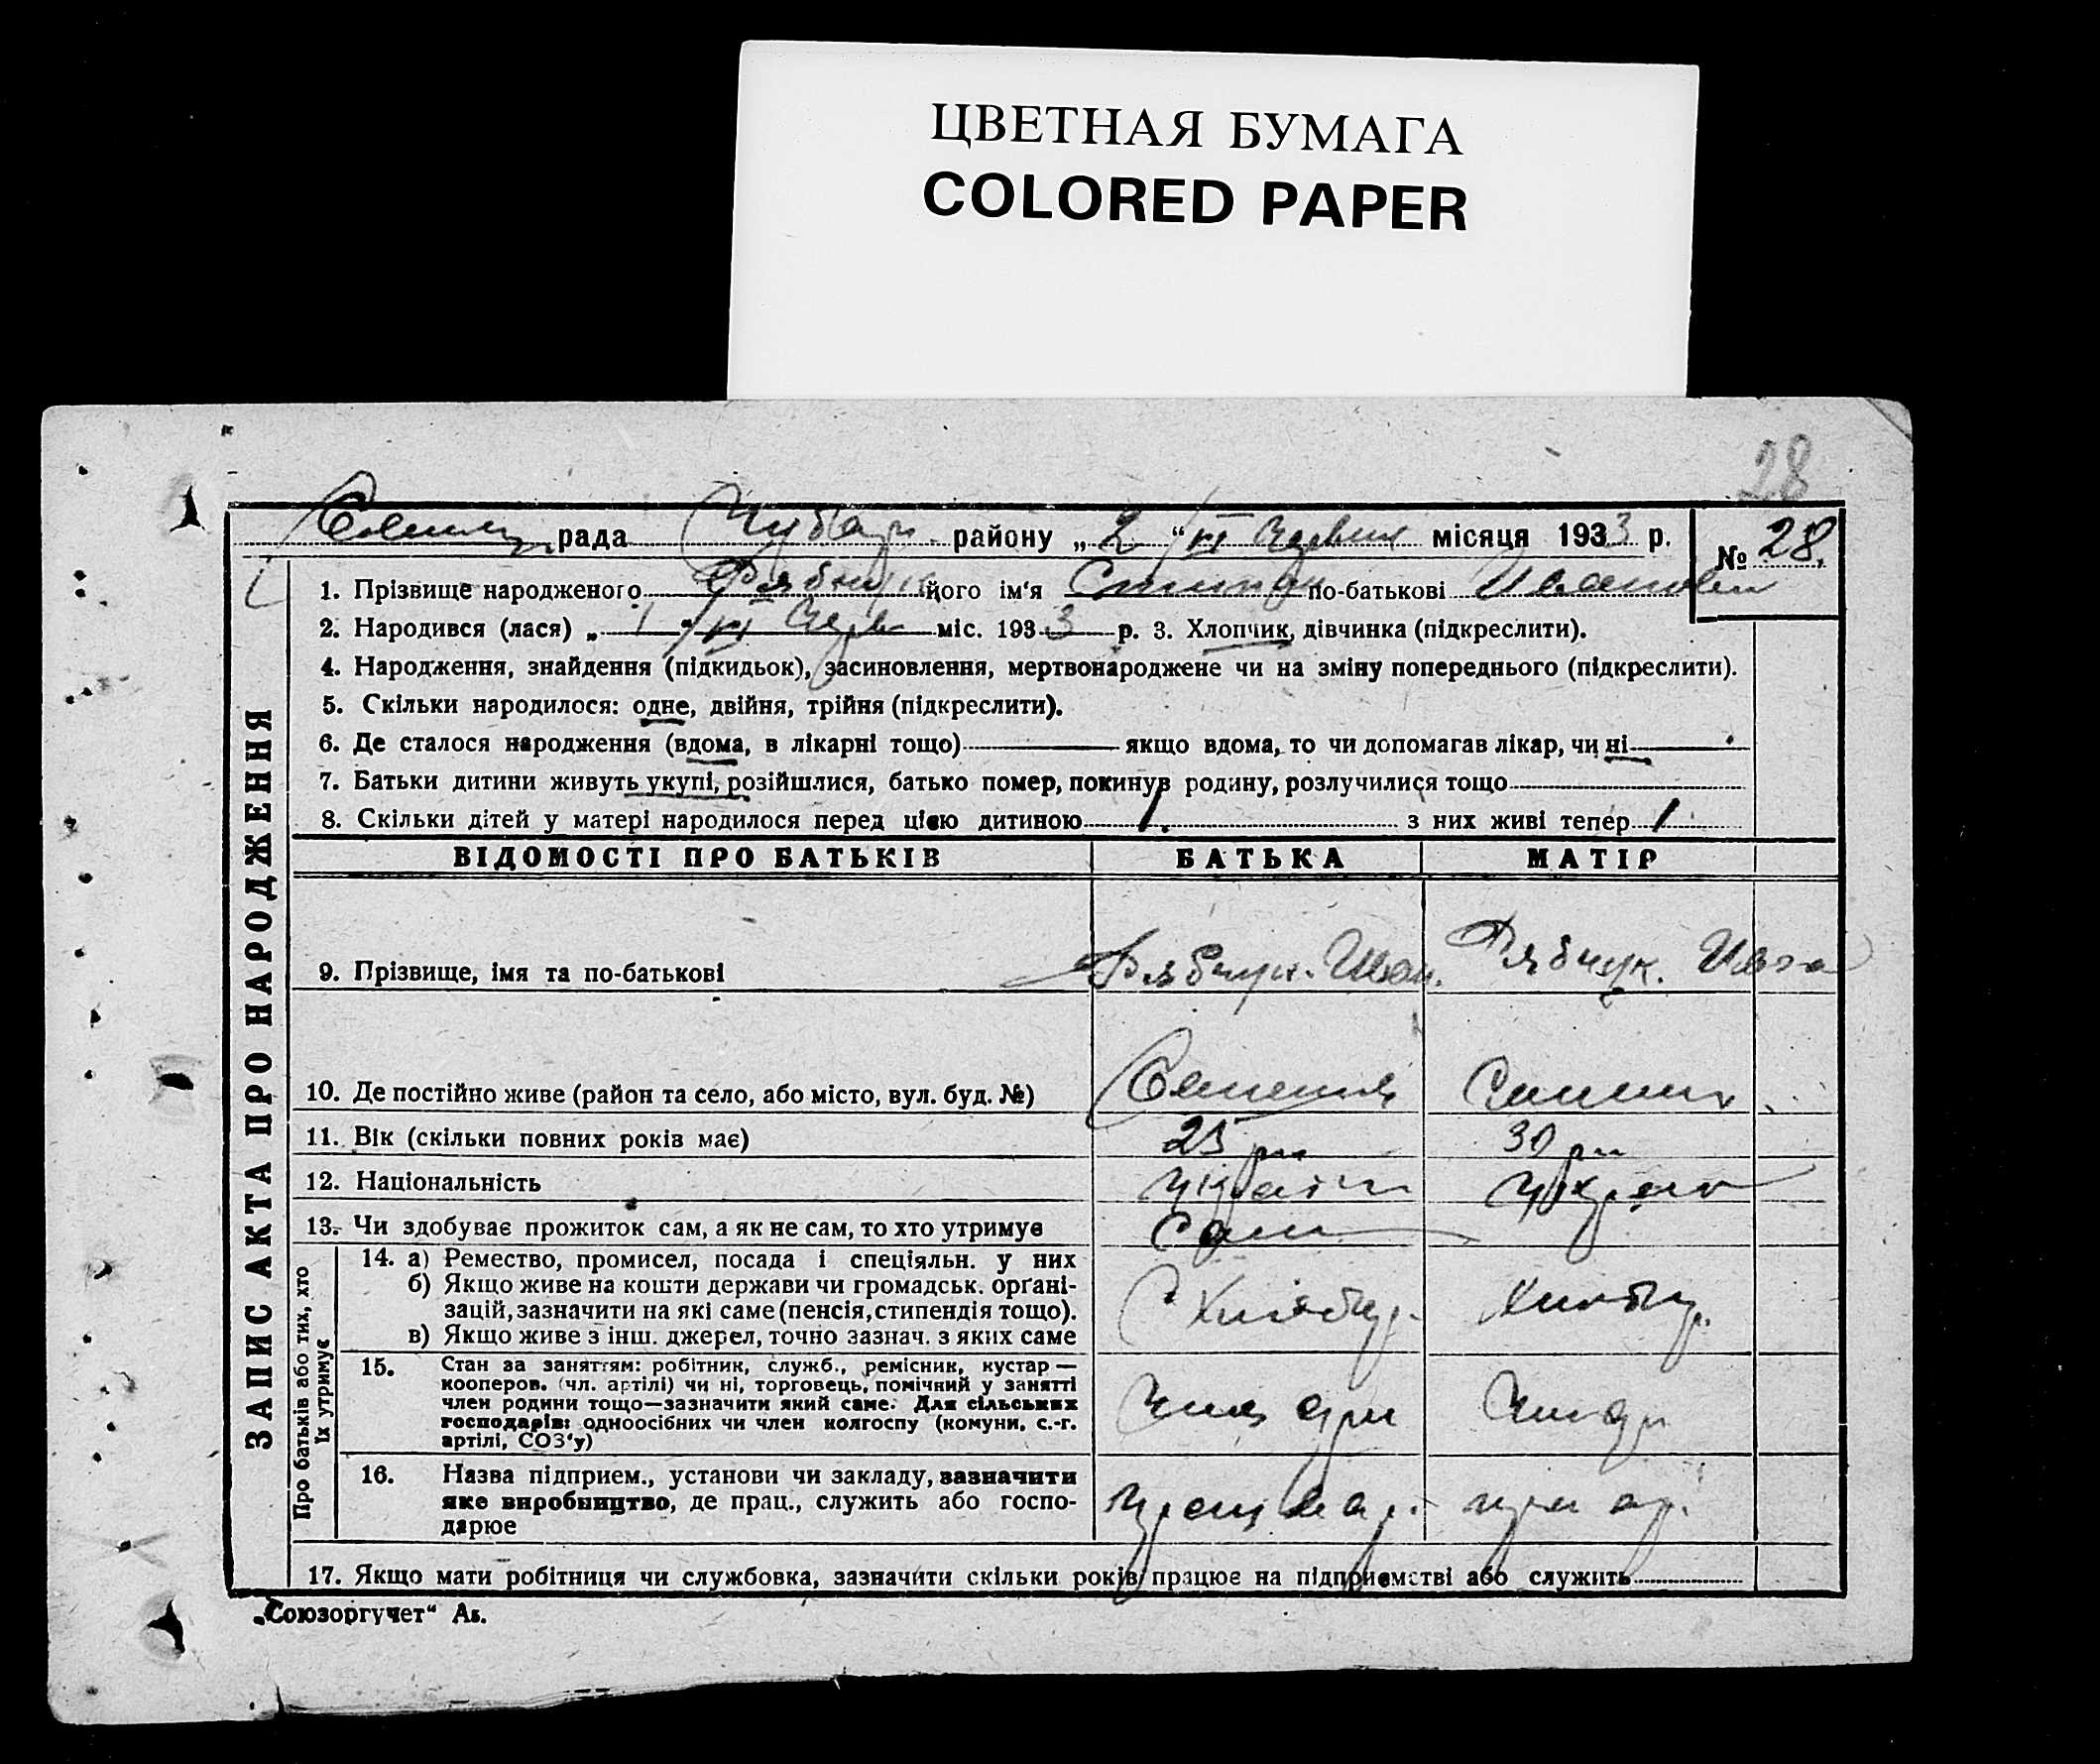 ЦВЕТНАЯ БУМАГА
COLORED PAPER
28
рада Чубар району „2“ VI Червня місяця 1933 р.
№ 28.
1. Прізвище народженого Рябчук його ім'я по-батькові Иванович
2. Народився (лася) „1“ VI Черв міс. 1933 р. 3. Хлопчик, дівчинка (підкреслити).
4. Народження, знайдення (підкидьок), засиновлення, мертвонароджене чи на зміну попереднього (підкреслити).
5. Скільки народилося: одне, двійня, трійня (підкреслити).
6. Де сталося народження (вдома, в лікарні тощо) якщо вдома, то чи допомагав лікар, чи ні
7. Батьки дитини живуть укупі, розійшлися, батько помер, покинув родину, розлучилися тощо
8. Скільки дітей у матері народилося перед цією дитиною 1. з них живі тепер 1
ВІДОМОСТІ ПРО БАТЬКІВ БАТЬКА МАТІР
9. Прізвище, імя та по-батькові Рябчук. Иван. Рябчук. Ивга
10. Де постійно живе (район та село, або місто, вул. буд. №)
11. Вік (скільки повних років має) 25 рік 30 рік
12. Національність Україн Україн
13. Чи здобуває прожиток сам, а як не сам, то хто утримує Сам
14. а) Ремество, промисел, посада і спеціяльн. у них
б) Якщо живе на кошти держави чи громадськ. орґані-
зацій, зазначити на які саме (пенсія, стипендія тощо).
в) Якщо живе з інш. джерел, точно зазнач. з яких саме
15. Стан за заняттям: робітник, служб., ремісник, кустар —
кооперов. (чл. артілі) чи ні, торговець, помічний у занятті
член родини тощо—зазначити який саме. Для сільських
господарів: одноосібних чи член колгоспу (комуни, с.-г.
артілі, СОЗ'у)
16. Назва підприєм., установи чи закладу, зазначити
яке виробництво, де прац., служить або госпо-
дарює
17. Якщо мати робітниця чи службовка, зазначити скільки років працює на підприємстві або служить
ЗАПИС АКТА ПРО НАРОДЖЕННЯ
Про батьків або тих, хто
їх утримує
„Союзоргучет“ Аь.